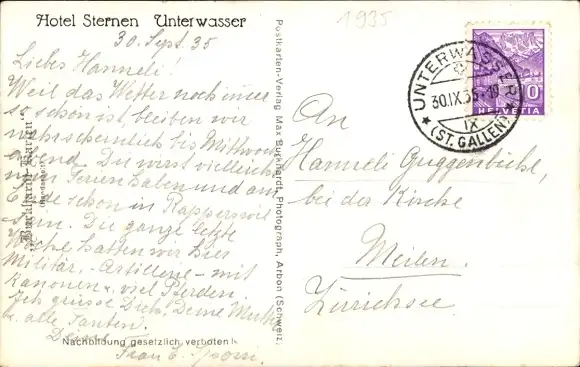 Hotel Sternen Unterwasser
1935
30. Sept. 35
Liebes Hanneli!
Weil das Wetter noch immer
so schön ist bleiben wir
wahrscheinlich bis Mittwoch
abend. Du wirst vielleicht
Ferien haben und am
Ende schon in Rapperswil
sein. Die ganze letzte
Woche hatten wir hier
Militär, - Artillerie - mit
Kanonen u. viel Pferden.
Ich grüsse Dich, Deine Mutter
u. alle Tanten.
Deine
Frau E.
Nachbildung gesetzlich verboten!
Postkarten-Verlag Max Burkhardt, Photograph, Arbon (Schweiz)
UNTERWASSER
30.IX.35
IX
(ST. GALLEN)
10
HELVETIA
An
Hanneli Guggenbühl,
bei der Kirche
Meilen.
Zürichsee.